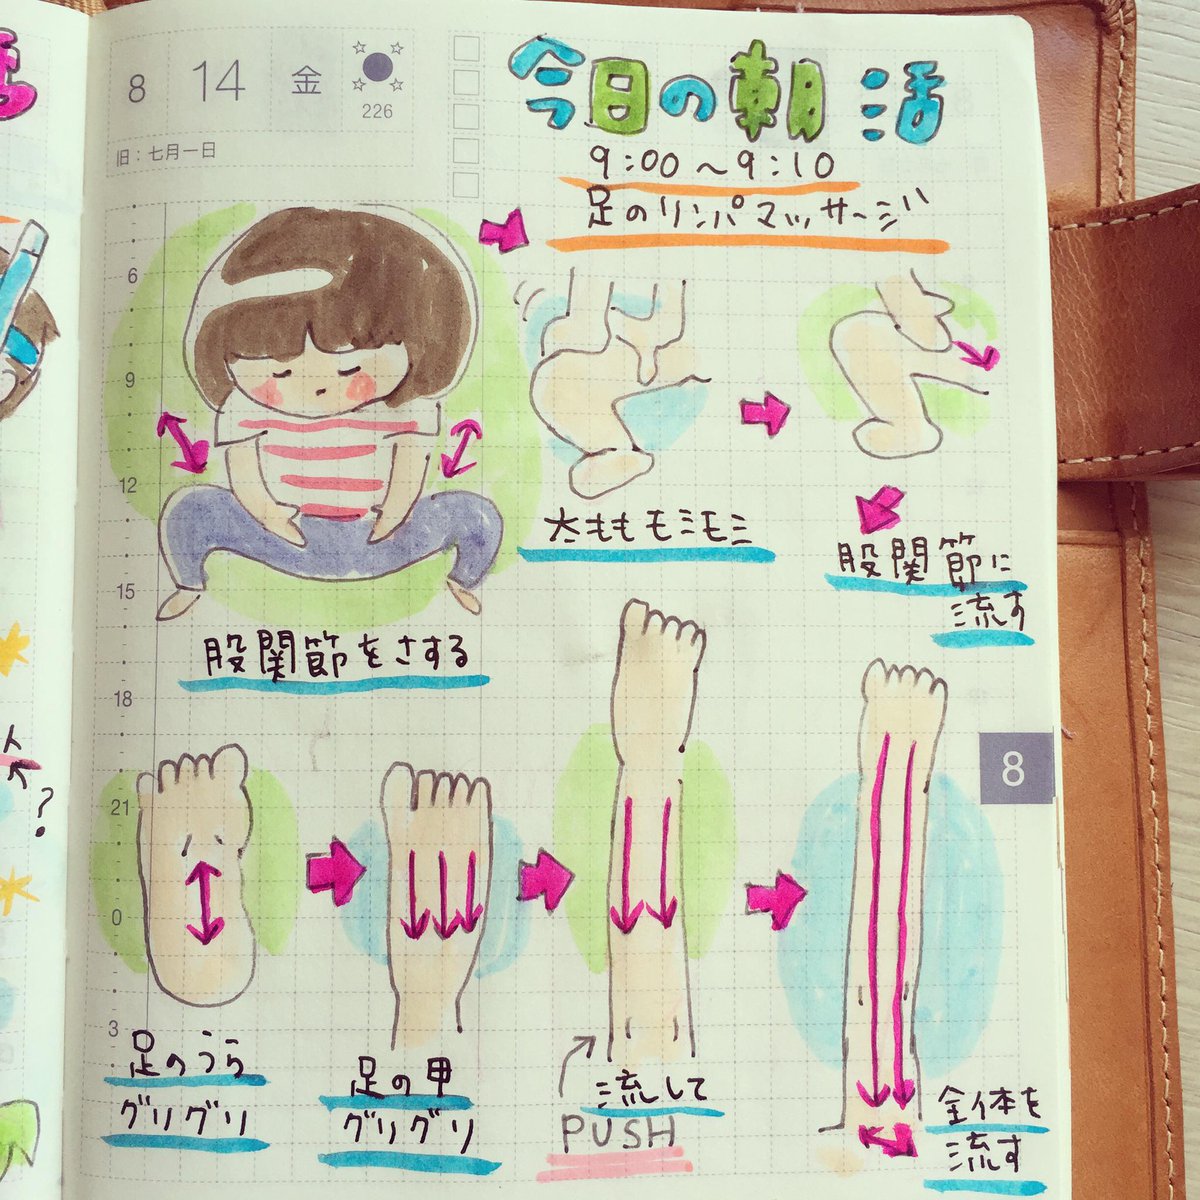 8 14 金
226
旧：七月一日
今日の朝活
9:00～9:10
足のリンパマッサージ
6
9
12
15
18
21
0
3
太ももモミモミ
股関節に
流す
股関節をさする
8
足のうら
グリグリ
足の甲
グリグリ
流して
PUSH
全体を
流す
?